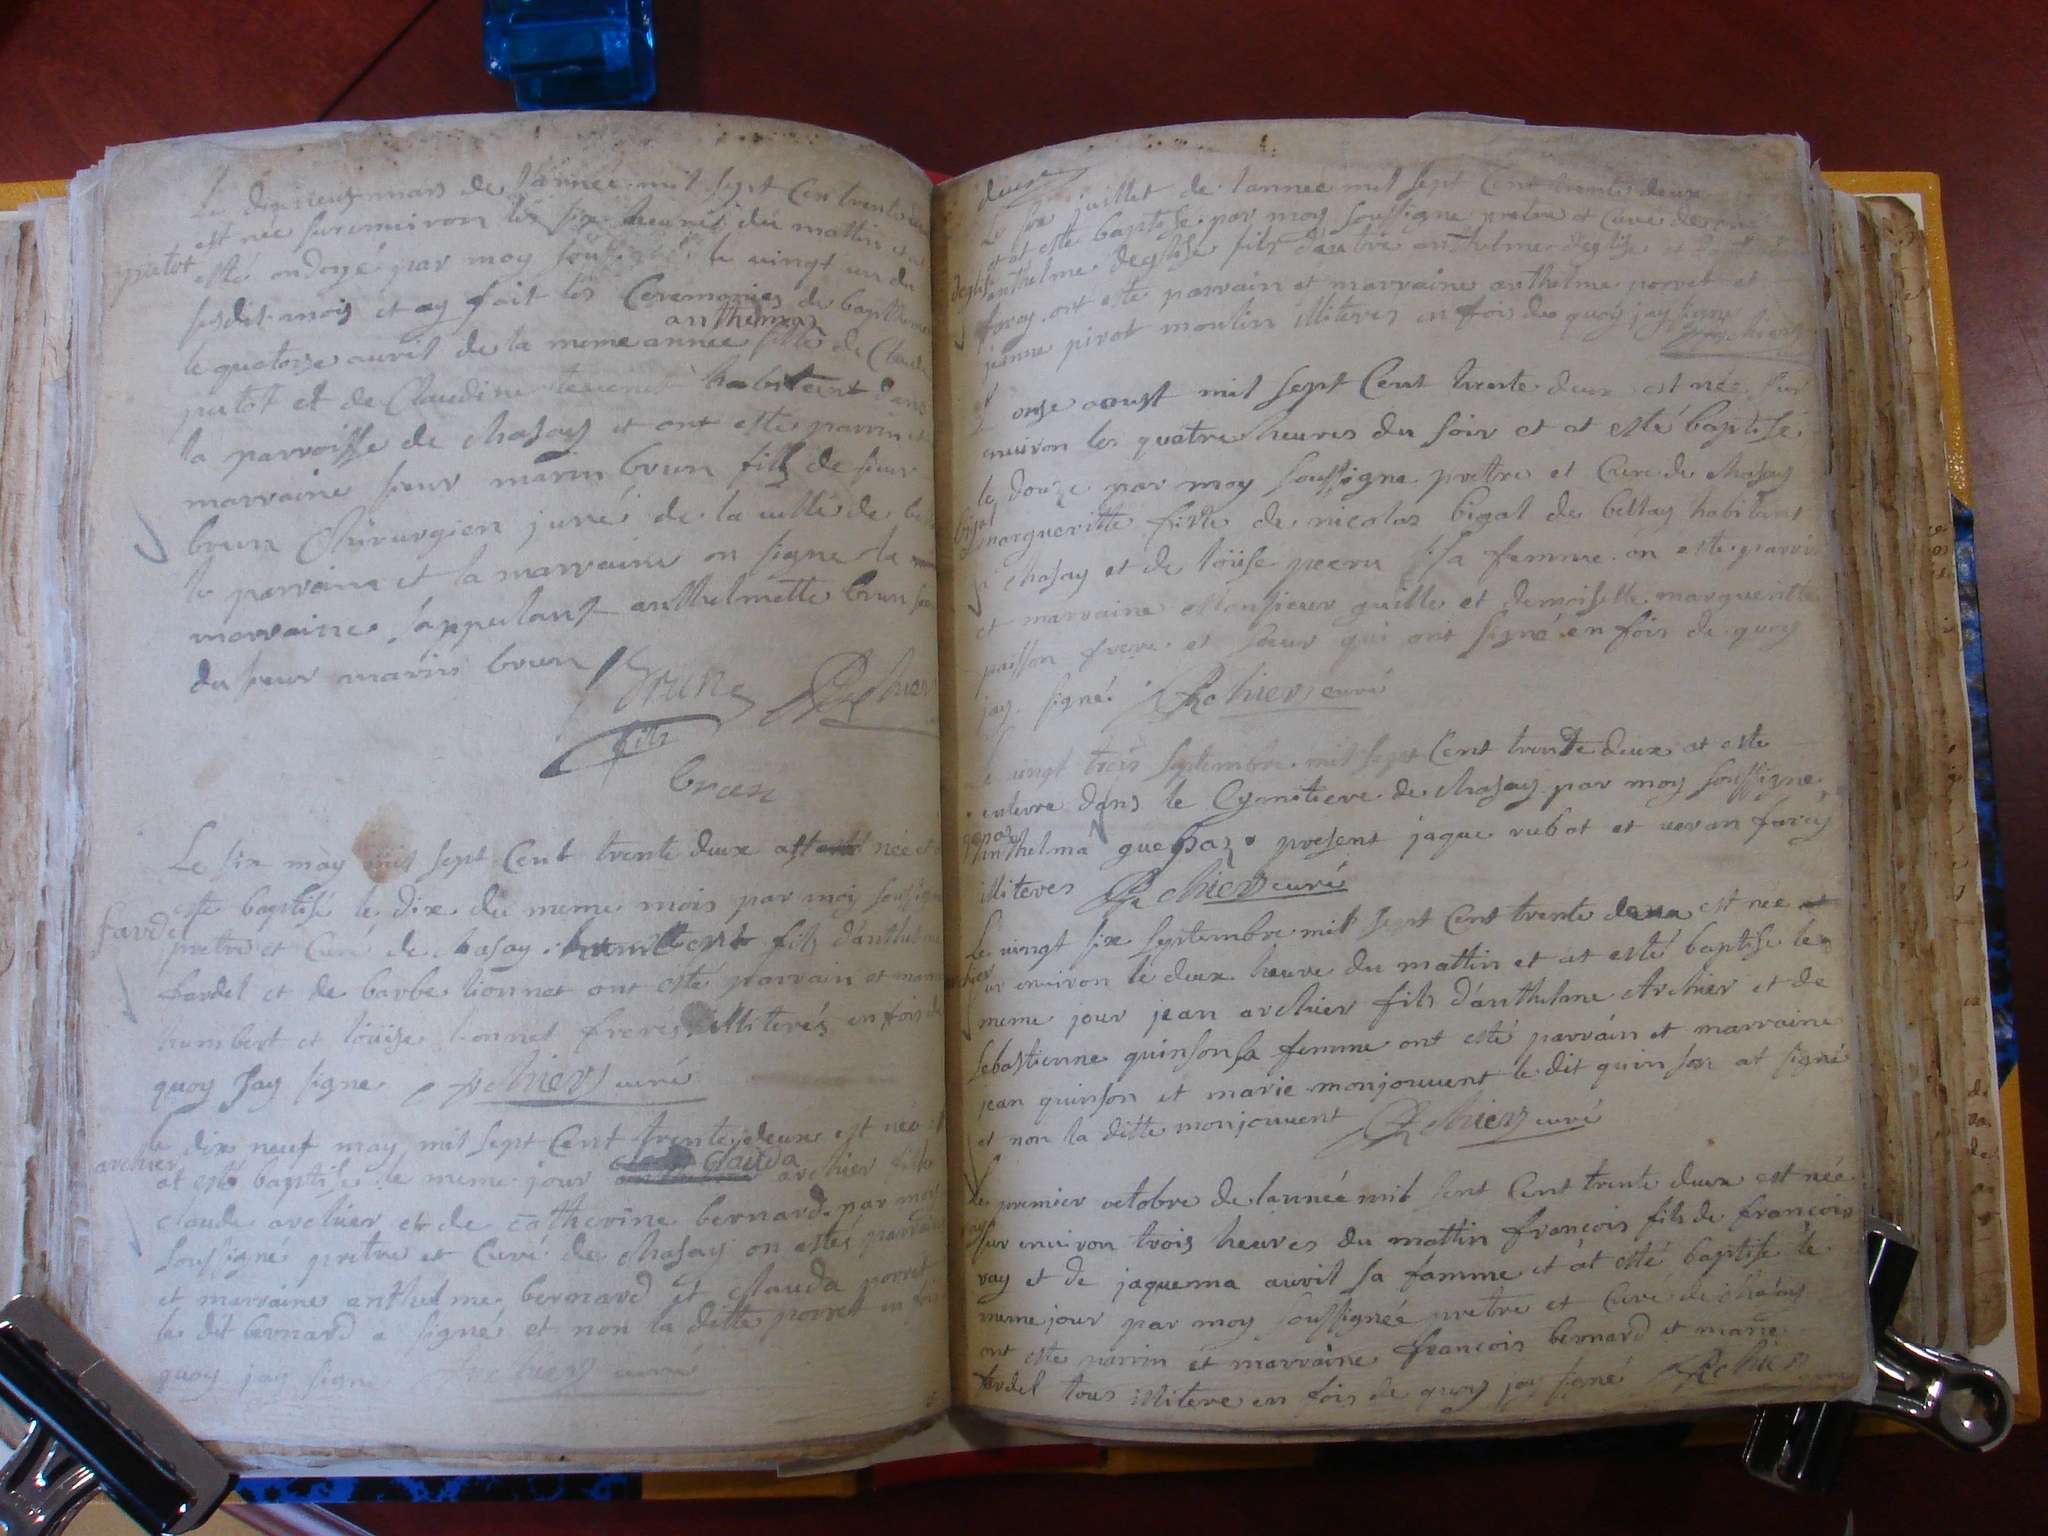 Le dixneuf mars de lannee mil sept Cen trente
est née sur environ les six heures du mattin et
putot
esté ondoyé par moy soussigné le vingt un du
susdit mois et ay fait les Ceremonies de bapthem
anthelmaz
le quatorze auril de la meme année fille de Claude
putot et de Claudine habitent dans
la parroisse de chasay et ont este parrin et
marraine sieur marin brun fils de sieur
brun Chirurgien juré de la uille de
le parrain et la marraine on signe la
marraine s'appelant anthelmette brun
du sieur marin brun
Brun
fils
brun
Le six may mil sept Cent trente deux née et
este baptisé le dix du meme mois par moy soussigné
fardel
pretre et Curé de chasay humbert fils d'anthelme
fardel et de barbe lionnet ont esté parrain et marraine
humbert et loüise lionnet freres illiterés en fois de
quoy Jay signe Archier curé
le dix neuf may mil sept Cent trente deux est née et
archier
clauda
at esté baptisée le meme jour archier fille
claude archier et de catherine bernard par moy
soussigné pretre et Curé de chasay on estés parrain
et marraine anthelme bernard et clauda porret
le dit bernard a signé et non la ditte porret en fois
quoy jay signe Archier curé
deux
Le six juillet de lannee mil sept Cent trente deux
at esté baptisé par moy soussigne pretre et Curé de
deglise
anthelme deglise fils d'autre anthelme deglise et
ont esté parrain et marraine anthelme porret et
jeanne pirot moulin illiteres en fois de quoy jay signe
Archier
L onze aoust mil sept Cent trente deux est née sur
environ les quatre heures du soir et at esté baptisé
le douze par moy soussigne pretre et Cure de chasay
bigot
margueritte fille de nicolas bigat de bellay habitant
a chasay et de loüise sa femme on este parrin
et marraine Monsieur guille et demoiselle margueritte
paisson frere et soeur qui ont signé en fois de quoy
jay signé Archier curé
Le vingt trois septembre mil sept Cent trente deux at este
enterre dans le Cymitiere de chasay par moy soussigne
anthelma present jaque rubat et veran farcy
illiteres Archier curé
Le vingt six septembre mil sept Cent trente deux est née
sur environ le deux heure du mattin et at esté baptise le
meme jour jean archier fils d'anthelme Archier et de
sebastienne quinson sa femme ont esté parrain et marraine
jean quinson et marie monjouvent le dit quinson at signé
et non la ditte monjouvent Archier curé
Le premier octobre de lannée mil sept Cent trente deux est née
ray
sur environ trois heures du mattin françois fils de françois
ray et de jaquema auril sa famme et at esté baptise le
meme jour par moy soussignée pretre et Curé de chasay
ont este parrin et marraine françois bernard et marie
fardel tous illitere en fois de quoy jay signé Archier